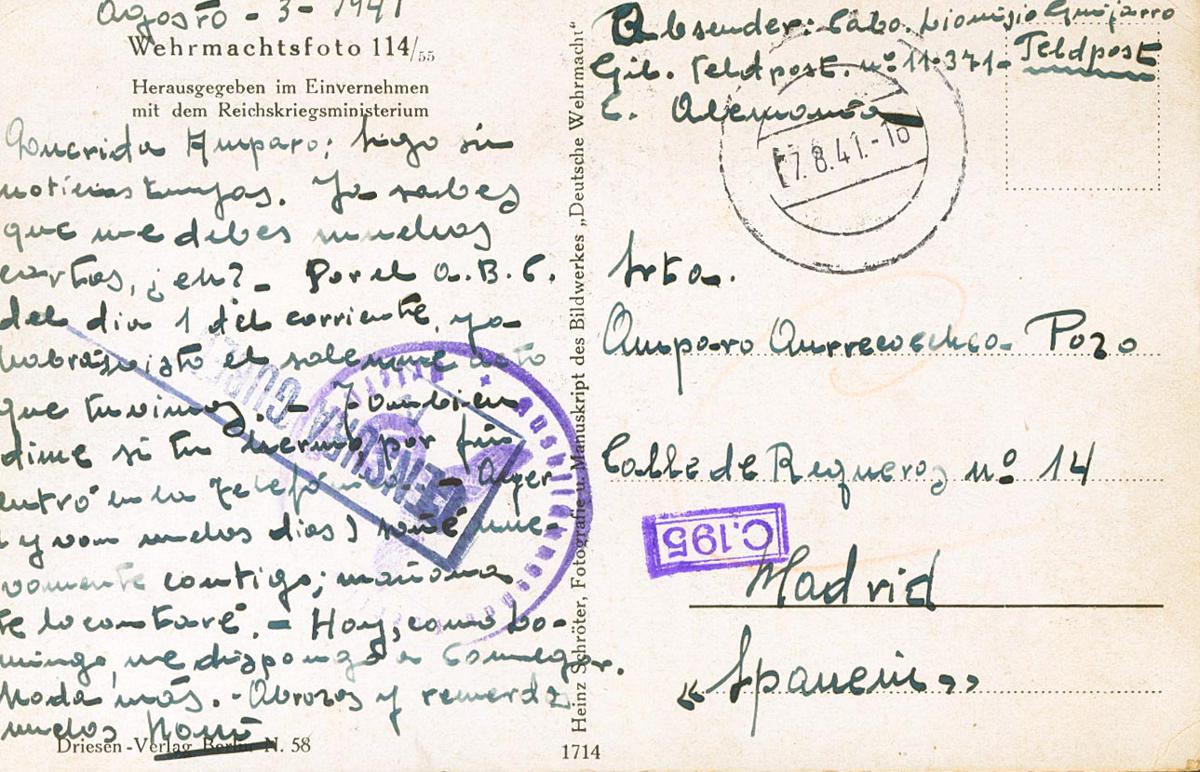 Agosto - 3 - 1941
Wehrmachtsfoto 114/55
Herausgegeben im Einvernehmen
mit dem Reichskriegsministerium
Querida Amparo: sigo sin
noticias tuyas. Ya sabes
que me debes muchas
cartas, ¿eh? - Por el A.B.C.
del dia 1 del corriente, ya
habrás visto el solemne acto
que tuvimos. - Tambien
dime si tu herma. por fin
entró en la Telefónica. - Ayer
( y van muchos dias ) soñé nue-
vamente contigo; mañana
te lo contaré. - Hoy, como Do-
mingo, me dispongo a
Nada más. - Abrazos y recuerdos
muchos
Driesen-Verlag Berlin N. 58
Heinz Schröter, Fotografie u. Manuskript des Bildwerkes „Deutsche Wehrmacht"
1714
Absender: Cabo. Dionisio Guijarro
Feldpost. nº 11.371 - Feldpost
Alemania
7.8.41.-18
Srta.
Amparo Aurrecoechea Pozo
Calle de Regueros nº 14
C.195
Madrid
"Spanein"
CENSURA GUBER
Ausbildungs